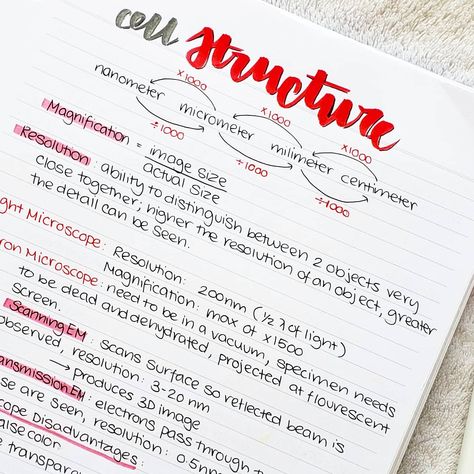 cell structure
x1000 x1000 x1000
nanometer micrometer milimeter centimeter
÷1000 ÷1000 ÷1000
Magnification = image size
actual size
Resolution: ability to distinguish between 2 objects very
close together; higher the resolution of an object, greater
the detail can be seen.
Microscope: Resolution: 200nm (½ λ of light)
Magnification: max of x1500
Microscope: need to be in a vacuum, specimen needs
to be dead and dehydrated, projected at flourescent
screen.
Scanning EM: scans surface so reflected beam is
observed, resolution: 3-20 nm
→ produces 3D image
EM: electrons pass through
are seen; resolution: 0.5nm
Disadvantages:
color
transpa